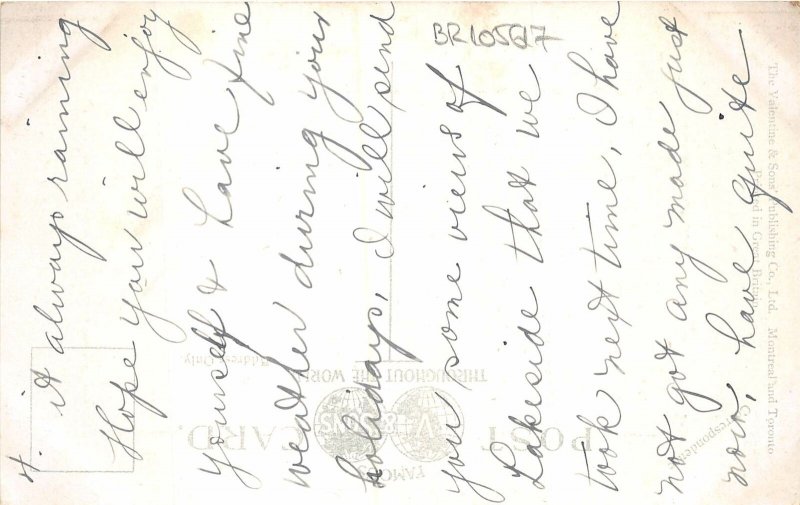 4.
it always raining
Hope you will enjoy
yourself & have fine
weather during your
holidays, I will send
you some views of
Lakeside that we
took next time, I have
not got any made just
now, have quite
BR10567
POST CARD.
FAMOUS
THROUGHOUT THE WORLD
Address Only.
Correspondence
The Valentine & Sons' Publishing Co., Ltd. Montreal and Toronto
Printed in Great Britain